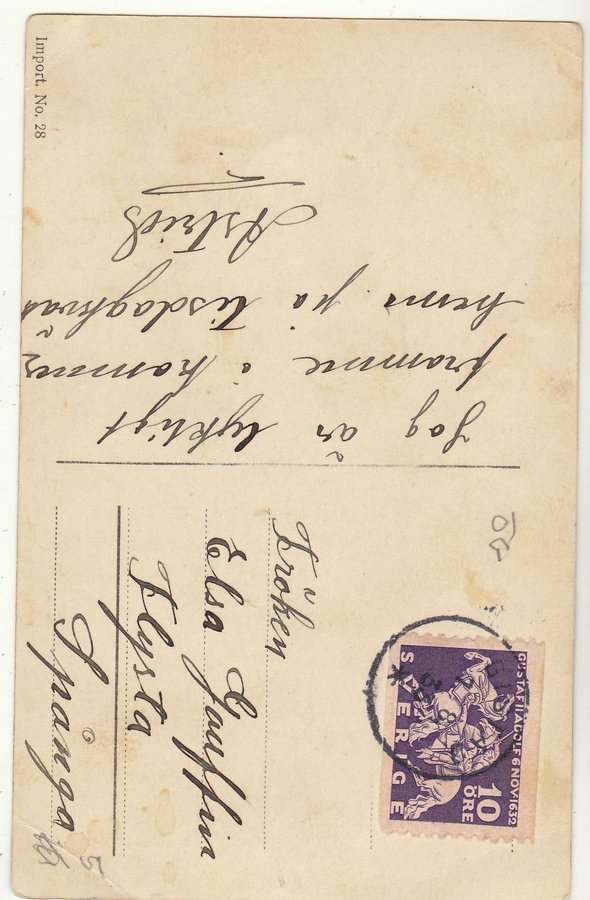 Import. No. 28
Jag är lyckligt
framme o kommer
hem på tisdagkväll
Astrid
Fröken
Elsa Gauffin
Flysta
Spånga
GUSTAF II ADOLF 6 NOV. 1632
SVERIGE
10
ÖRE